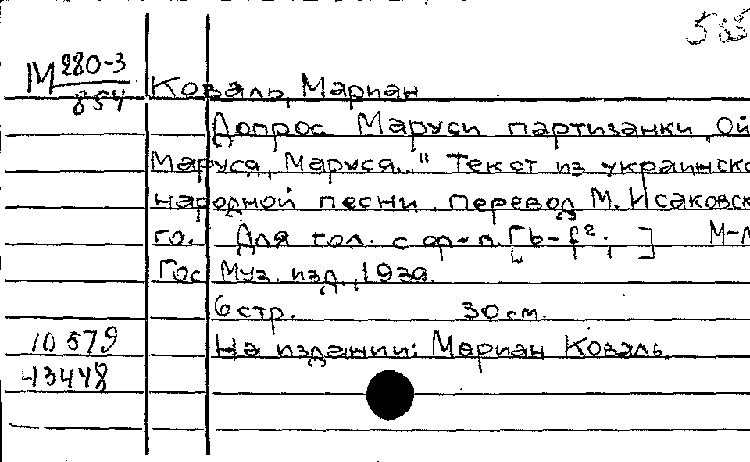 М 280-3
854
Коваль, Мариан
Допрос Маруси партизанки „Ой
Маруся, Маруся.." Текст из украинско
народной песни. Перевод М. Исаковск
го. Для гол. с ф-п. [b-f²; ] М-Л
Гос. Муз. изд., 1939.
6 стр. 30 см.
На издании: Мариан Коваль.
10579
13448